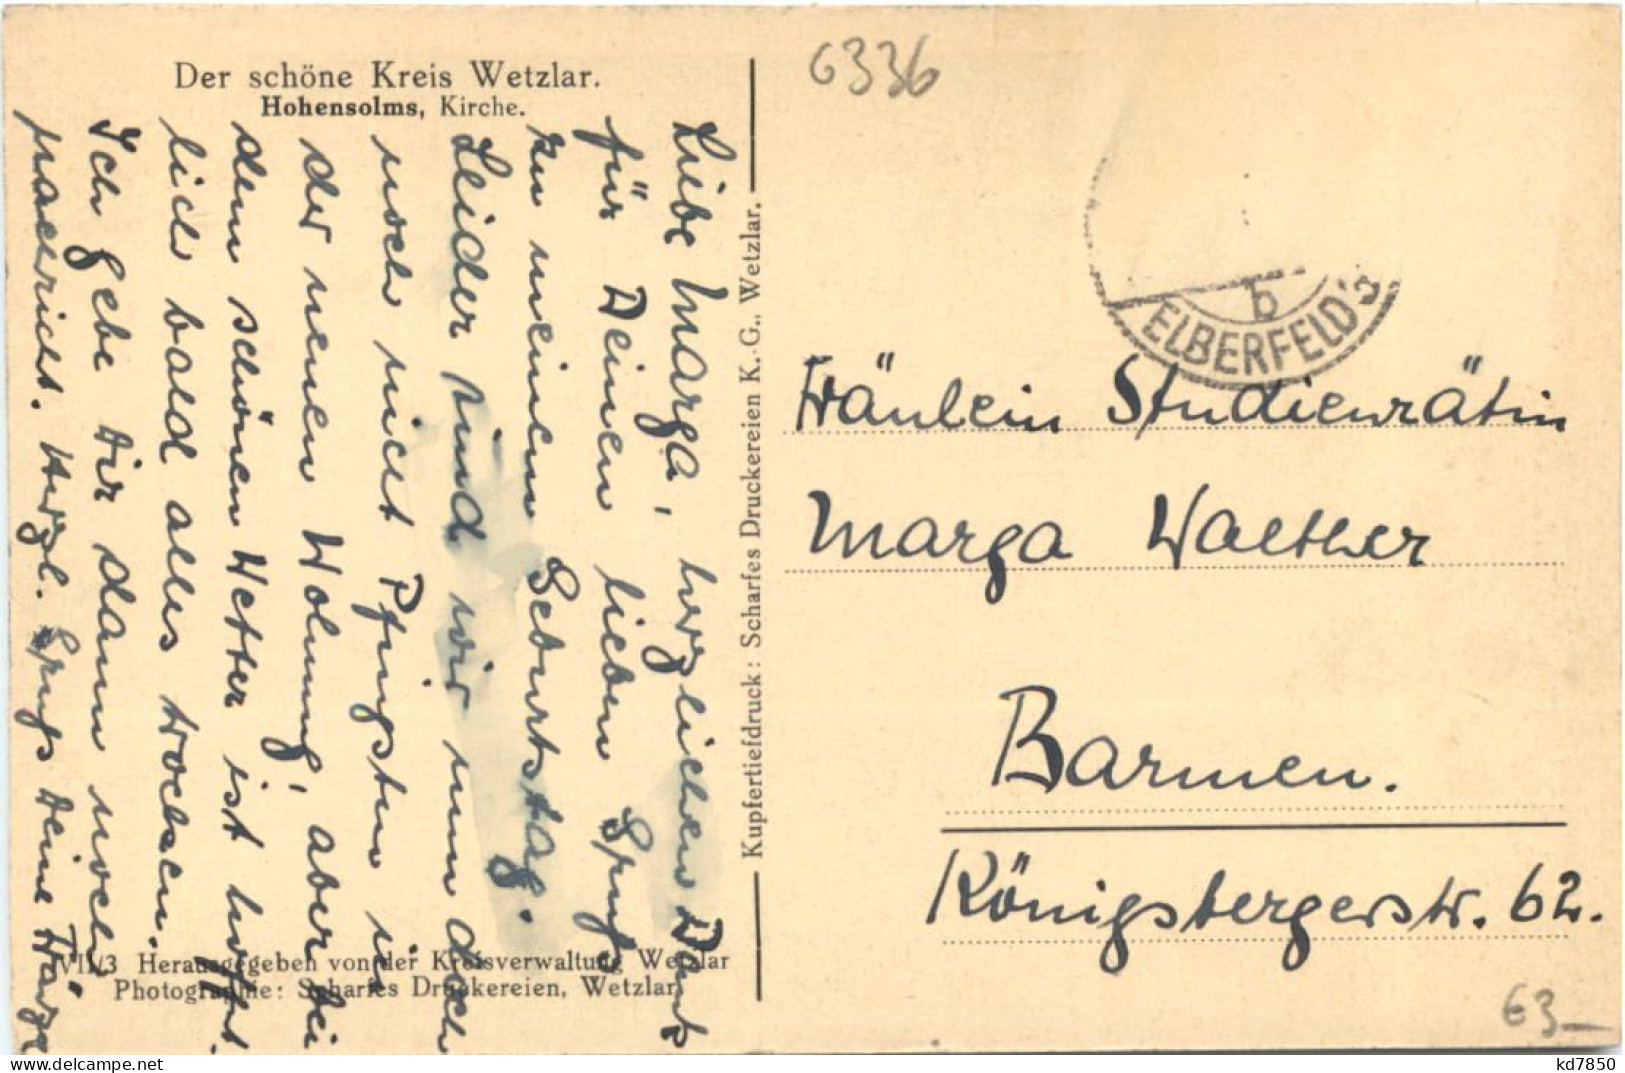 Der schöne Kreis Wetzlar.
Hohensolms, Kirche.
Liebe Marga, herzlichen Dank
für Deinen lieben Gruß
zu meinem Geburtstag.
Leider sind wir nun doch
noch nicht Pfingsten in
der neuen Wohnung, aber bei
dem schönen Wetter ist hoffent
lich bald alles trocken.
Ich gebe Dir dann noch
Nachricht. Herzl. Gruß Deine
VII/3 Herausgegeben von der Kreisverwaltung Wetzlar
Photographie: Scharfes Druckereien, Wetzlar.
Kupfertiefdruck: Scharfes Druckereien K.-G., Wetzlar.
6336
b
ELBERFELD
Fräulein Studienrätin
Marga Walther
Barmen.
Königsbergerstr. 62.
€3—
www.delcampe.net
kd7850